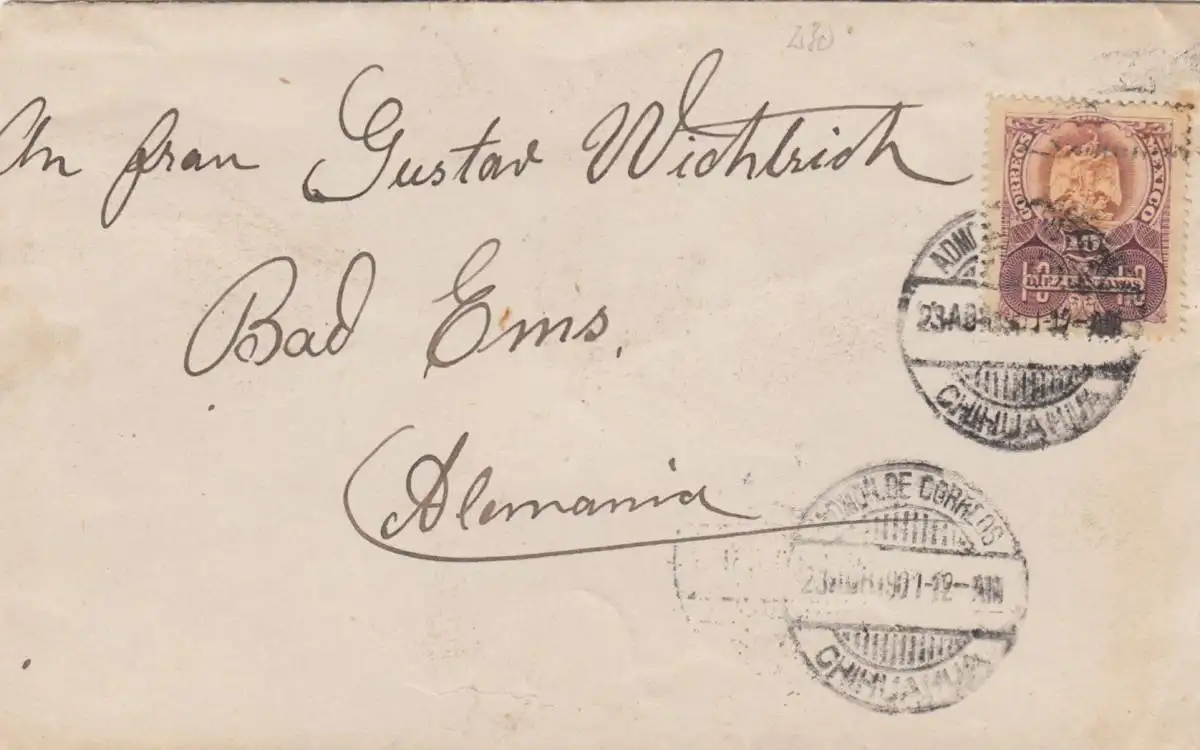 230
An frau Gustav Wichtrich
Bad Ems.
Alemania
CORREOS MEXICO
10 10
DIEZ CENTAVOS
ADMO
23 ABR 1901-12-AM
CHIHUAHUA
ADMON. DE CORREOS
23 ABR 1901-12-AM
CHIHUAHUA